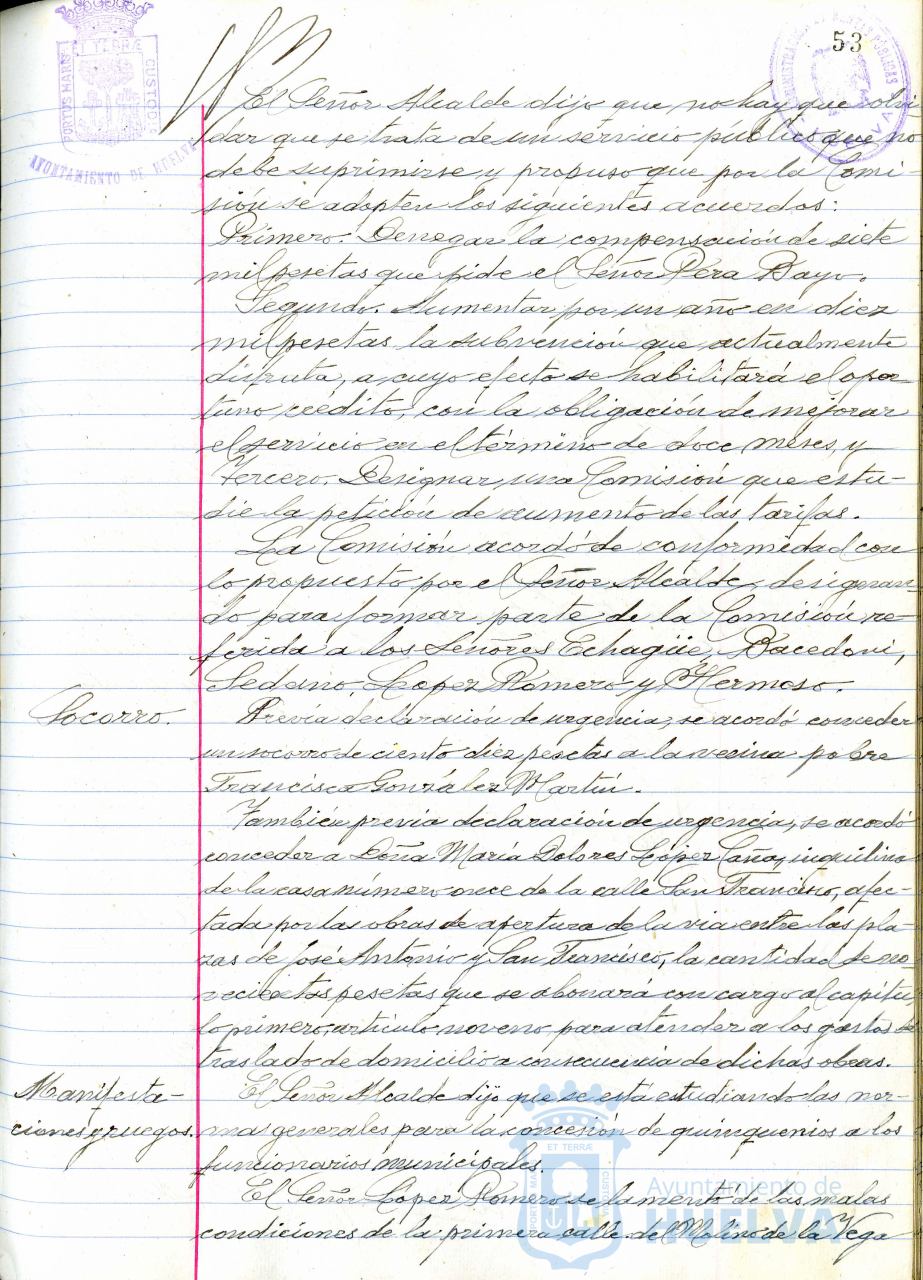 53
PORTUS MARIS ET TERRÆ CUSTODIA
AYUNTAMIENTO DE HUELVA
El Señor Alcalde dijo que no hay que olvi
dar que se trata de un servicio público que no
debe suprimirse y propuso que por la Comi-
sión se adopten los siguientes acuerdos:
Primero. Denegar la compensación de siete
mil pesetas que pide el Señor Pera Bayo.
Segundo. Aumentar por un año en diez
mil pesetas la subvención que actualmente
disfruta, a cuyo efecto se habilitará el opor-
tuno crédito, con la obligación de mejorar
el servicio en el término de doce meses, y
Tercero. Designar una Comisión que estu-
die la petición de aumento de las tarifas.
La Comisión acordó de conformidad con
lo propuesto por el Señor Alcalde, designan-
do para formar parte de la Comisión re-
ferida a los Señores Echagüe, Bacedoni,
Sedano, Lopez Romero y Hermoso.
Socorro.
Previa declaración de urgencia, se acordó conceder
un socorro de ciento diez pesetas a la vecina pobre
Francisca González Martín.
También previa declaración de urgencia, se acordó
conceder a Doña María Dolores López Caña, inquilino
de la casa número once de la calle San Francisco, afec-
tada por las obras de apertura de la via entre las pla-
zas de José Antonio y San Francisco, la cantidad de no-
vecientas pesetas que se abonará con cargo al capítu-
lo primero, artículo noveno, para atender a los gastos de
traslado de domicilio a consecuencia de dichas obras.
Manifesta-
ciones y ruegos.
El Señor Alcalde dijo que se está estudiando las nor-
mas generales para la concesión de quinquenios a los
funcionarios municipales.
El Señor Lopez Romero se lamentó de las malas
condiciones de la primera calle del Molino de la Vega
Ayuntamiento de
HUELVA